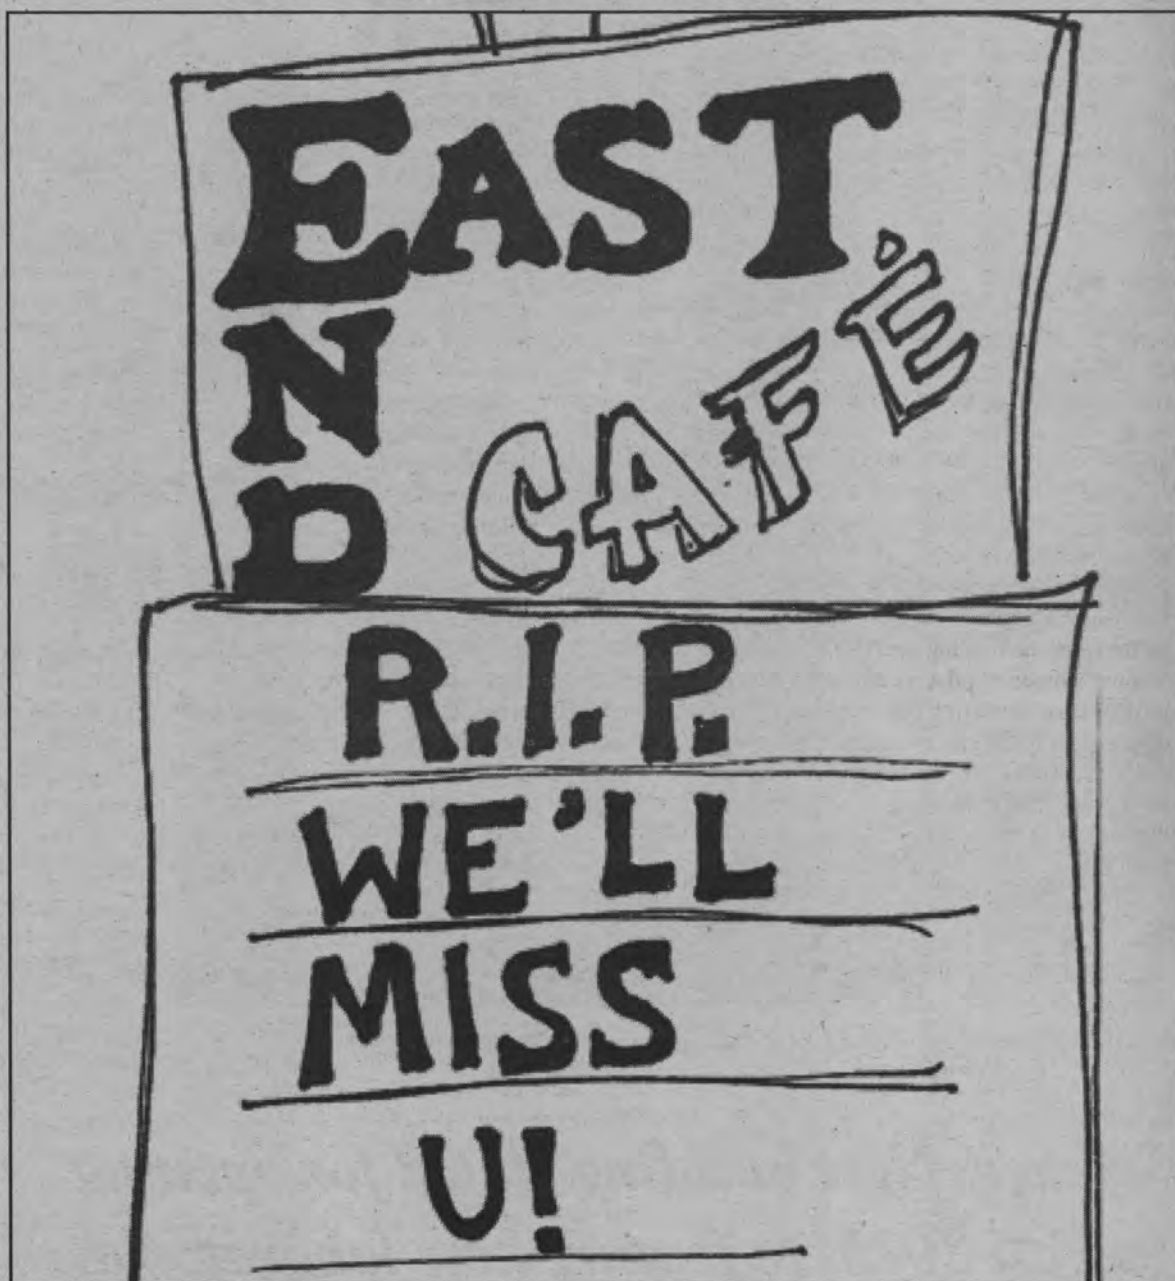 EAST
END
CAFÉ
R.I.P.
WE'LL
MISS
U!